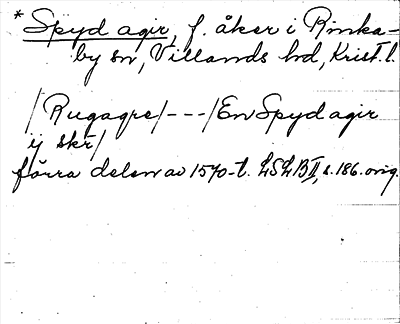 * Spyd agir, f. åker i Rinka-
by sn, Villands hd, Krist. l.
/Rugagre/---/En Spyd agir
ij skr/
förra delen av 1570-t. LSLB II, s. 186. orig.